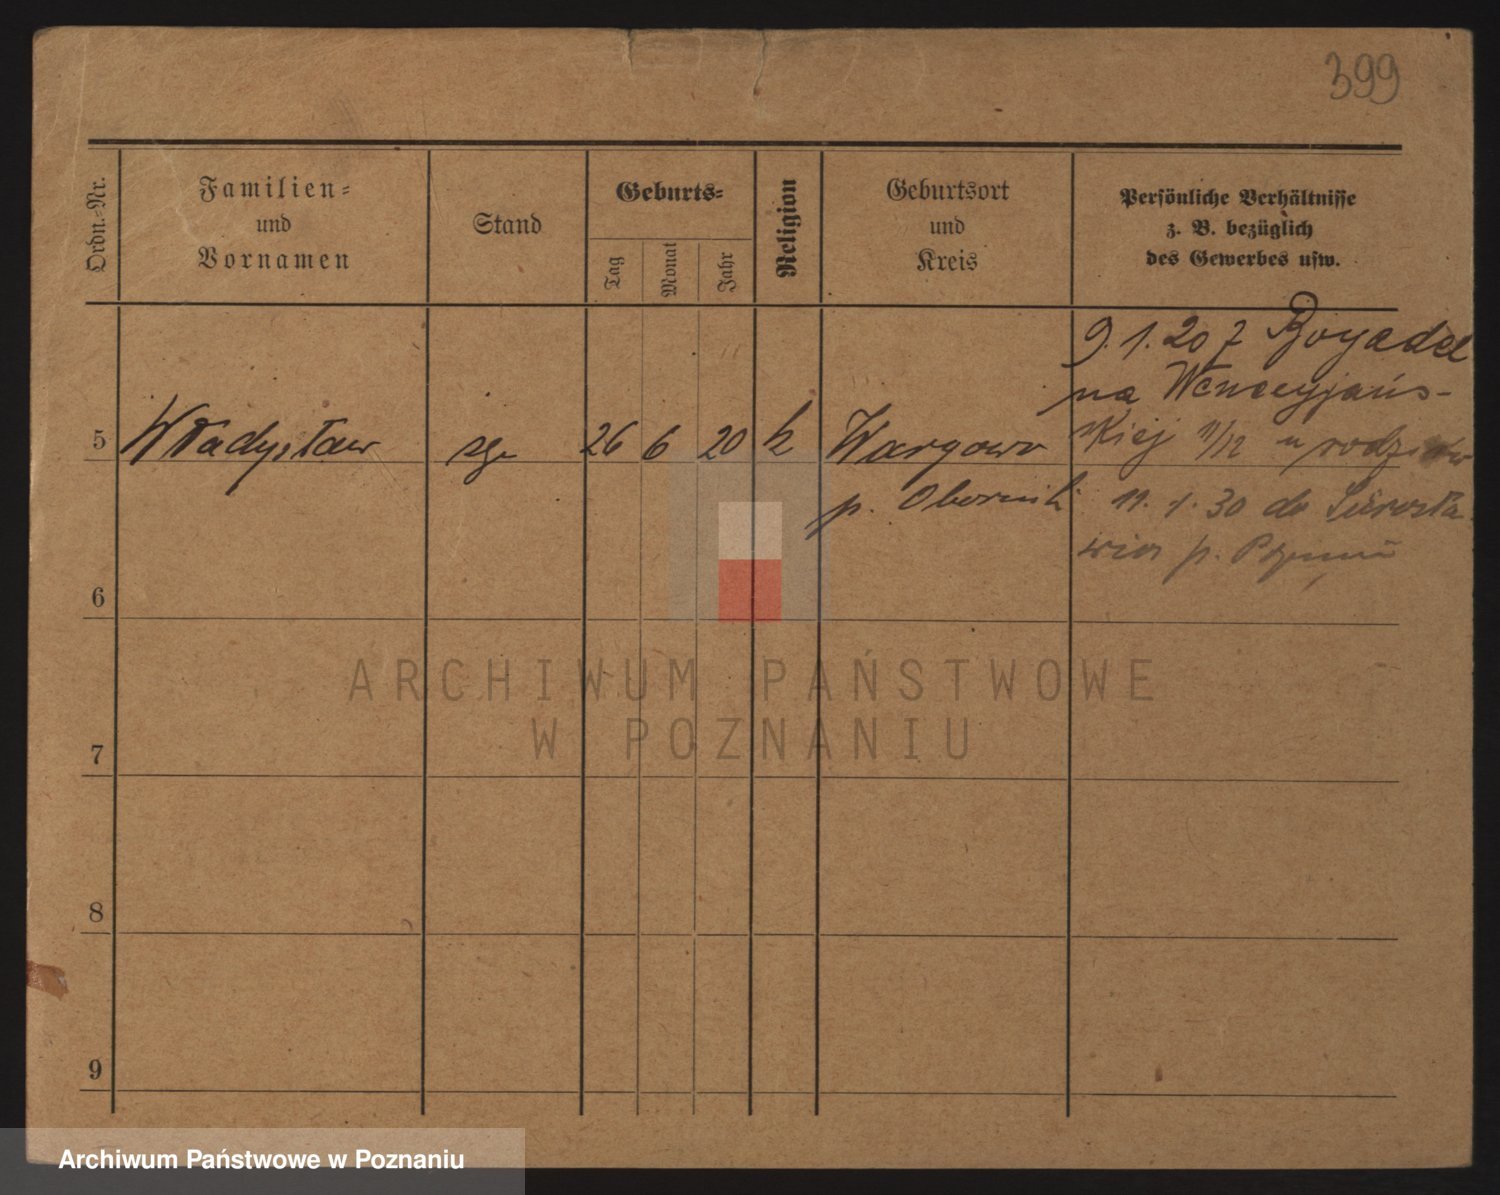 399
Ordn.-Nr.
Familien-
und
Vornamen
Stand
Geburts-
Tag
Monat
Jahr
Religion
Geburtsort
und
Kreis
Persönliche Verhältnisse
z. B. bezüglich
des Gewerbes usw.
9.1.20 z Boyadel
na Wenecyjańs-
kiej 11/12 u rodziców
5 Władysław 26 6 20 k Wargowo
p. Oborniki
11.1.30 do
p.
6
ARCHIWUM PAŃSTWOWE
W POZNANIU
7
8
9
Archiwum Państwowe w Poznaniu